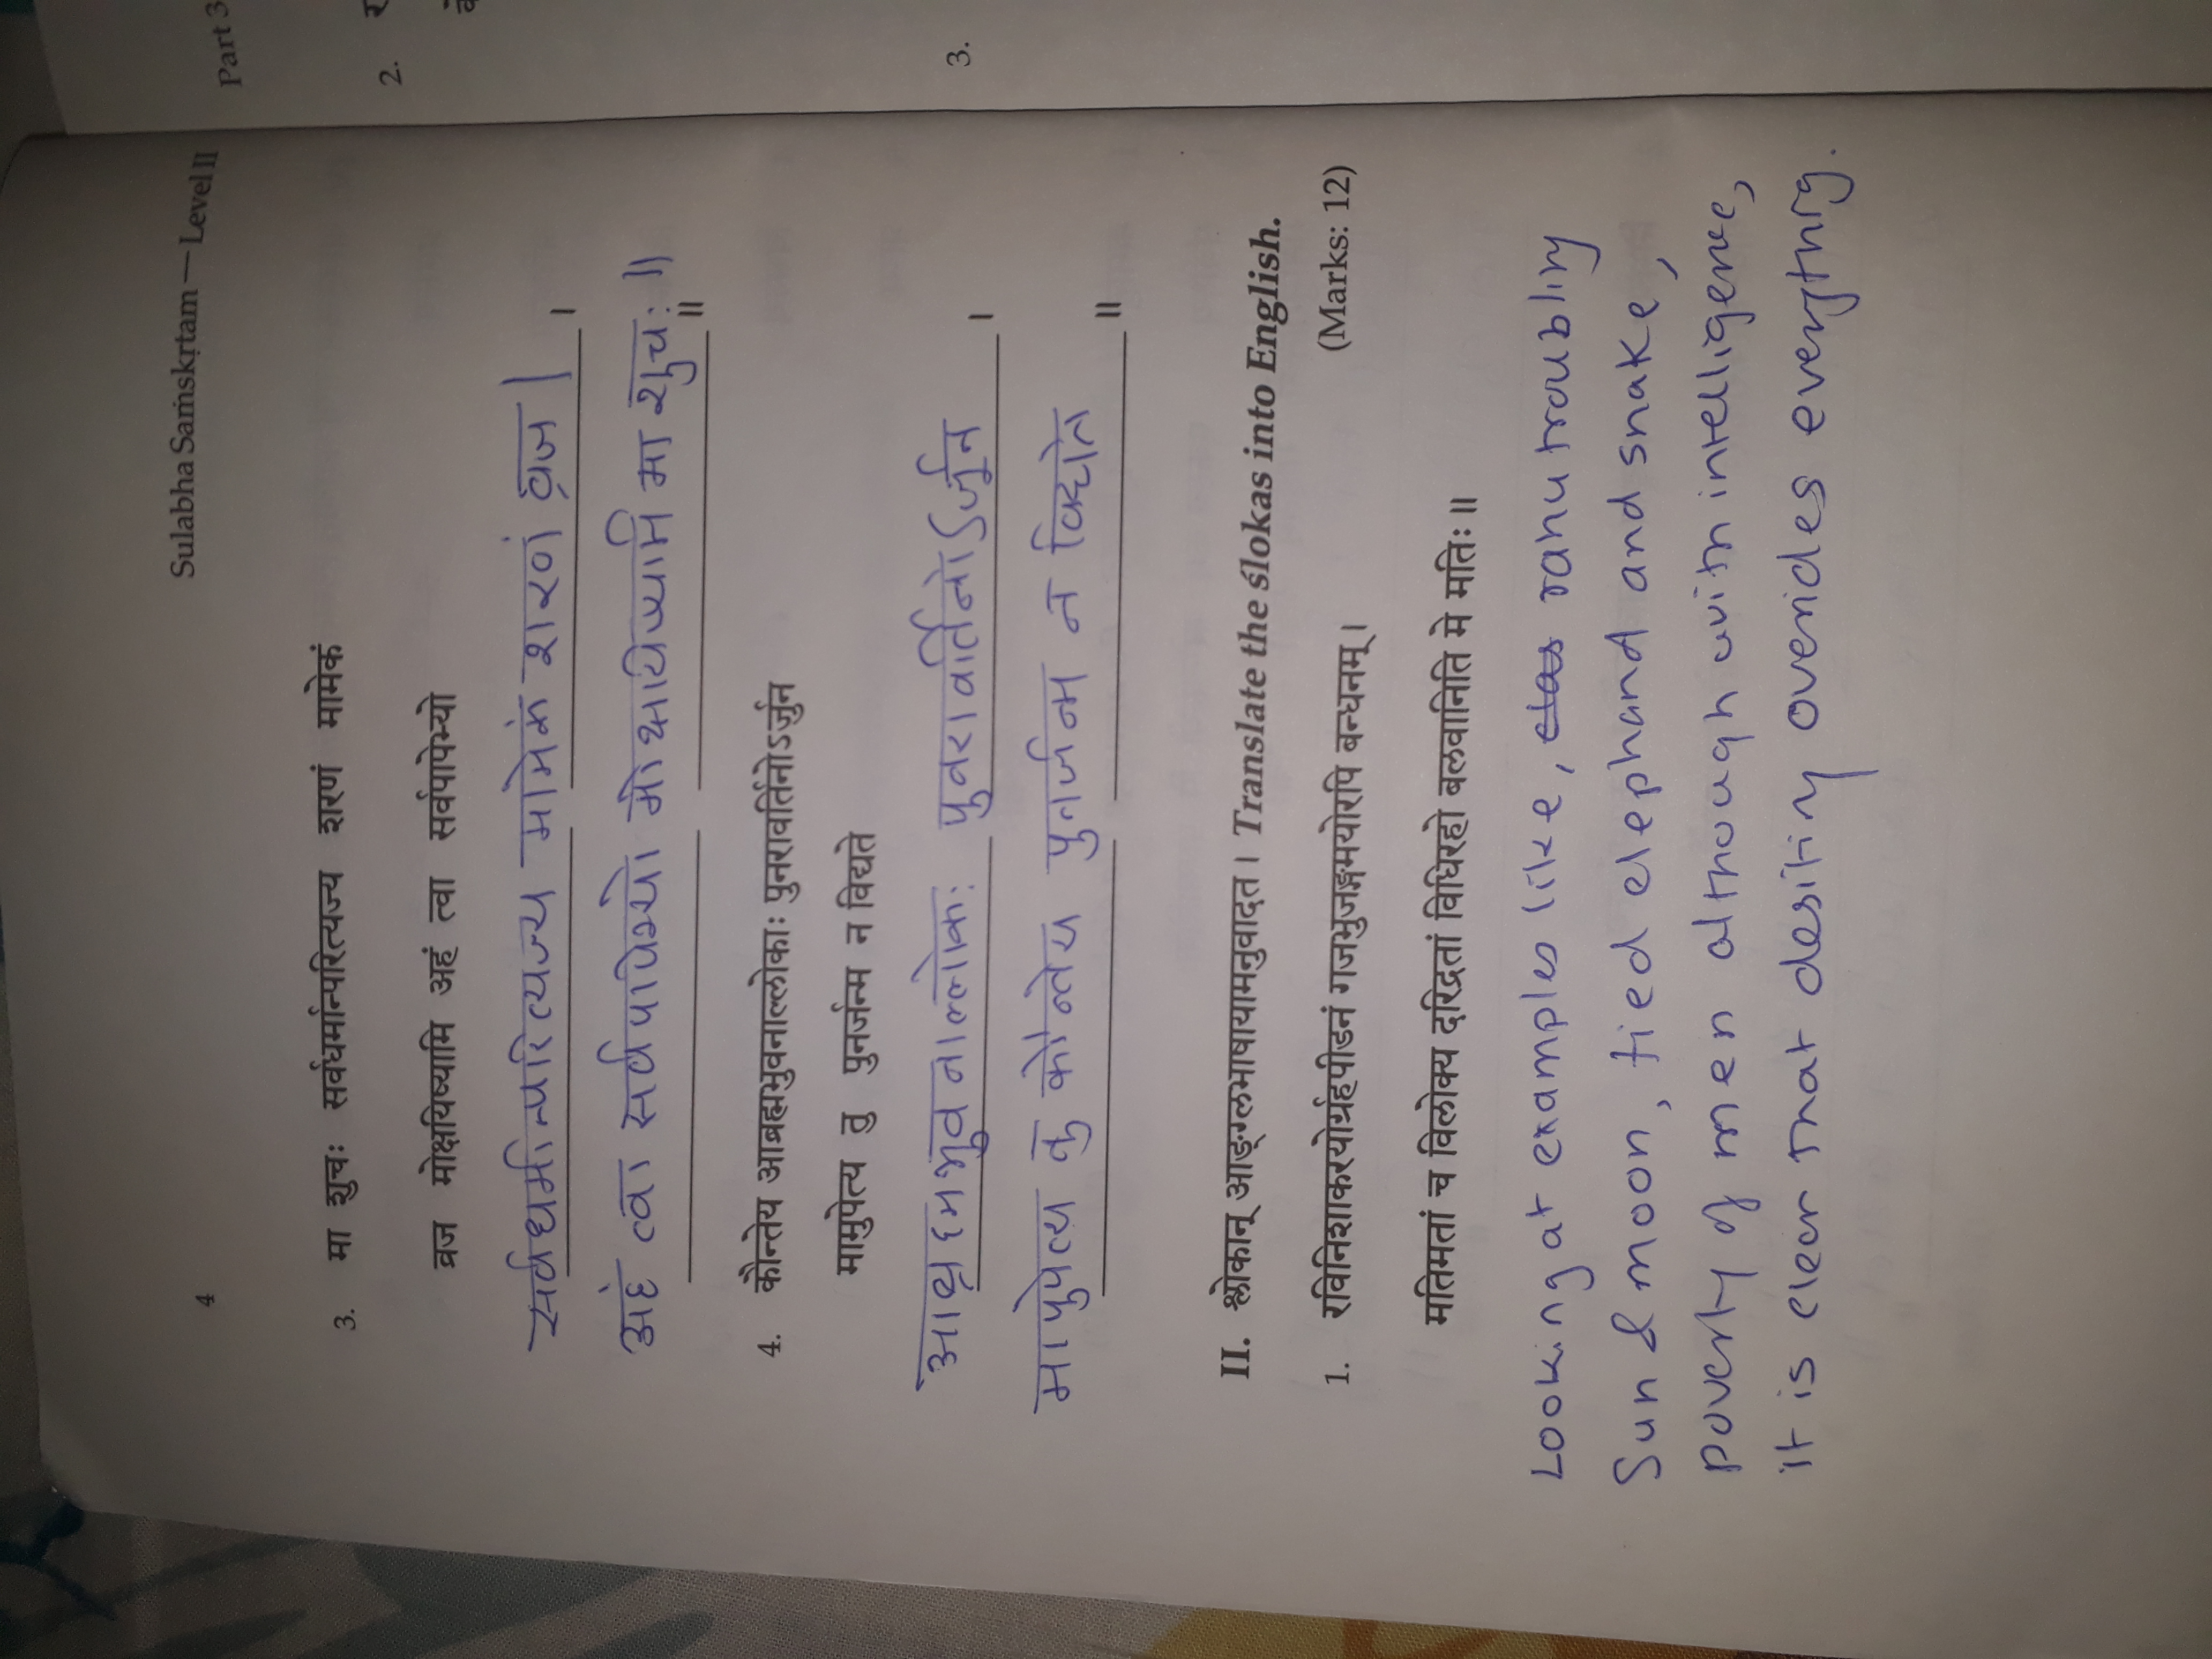 4
Sulabha Saṁskṛtam — Level II
Part 3
3. मा शुचः सर्वधर्मान्परित्यज्य शरणं मामेकं
व्रज मोक्षयिष्यामि अहं त्वा सर्वपापेभ्यो
सर्वधर्मान्परित्यज्य मामेकं शरणं व्रज | ।
अहं त्वा सर्वपापेभ्यो मोक्षयिष्यामि मा शुचः || ॥
4. कौन्तेय आब्रह्मभुवनाल्लोकाः पुनरावर्तिनोऽर्जुन
मामुपेत्य तु पुनर्जन्म न विद्यते
आब्रहमभुवनाल्लोकः पुनरावर्तिनोऽर्जून ।
मापुपेत्य तु कौन्तेय पुनर्जन्म न विद्यते ॥
II. श्लोकान् आङ्ग्लभाषायामनुवादत । Translate the ślokas into English.
(Marks: 12)
1. रविनिशाकरयोर्ग्रहपीडनं गजभुजङ्गमयोरपि बन्धनम् ।
मतिमतां च विलोक्य दरिद्रतां विधिरहो बलवानिति मे मतिः ॥
Looking at examples like, rahu troubling
Sun & moon, tied elephand and snake,
poverty of men although with intelligence,
it is clear that desitiny overides everything.
2.
3.